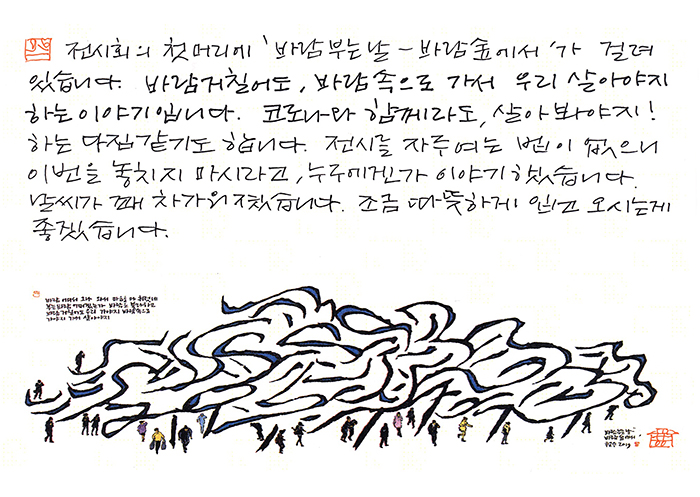 전시회의 첫머리에 '바람부는날 - 바람숲에서'가 걸려
있습니다. 바람거칠어도, 바람속으로 가서 우리 살아야지
하는 이야기입니다. 코로나와 함께라도, 살아봐야지!
하는 다짐같기도 합니다. 전시를 자주여는 법이 없으니
이번을 놓치지 마시라고, 누구에겐가 이야기 했습니다.
날씨가 꽤 차가워졌습니다. 조금 따뜻하게 입고 오시는게
좋겠습니다.
바람거칠어도 우리 가야지 바람속으로
가야지 가서 살아야지
바람부는날
바람숲에서
2019